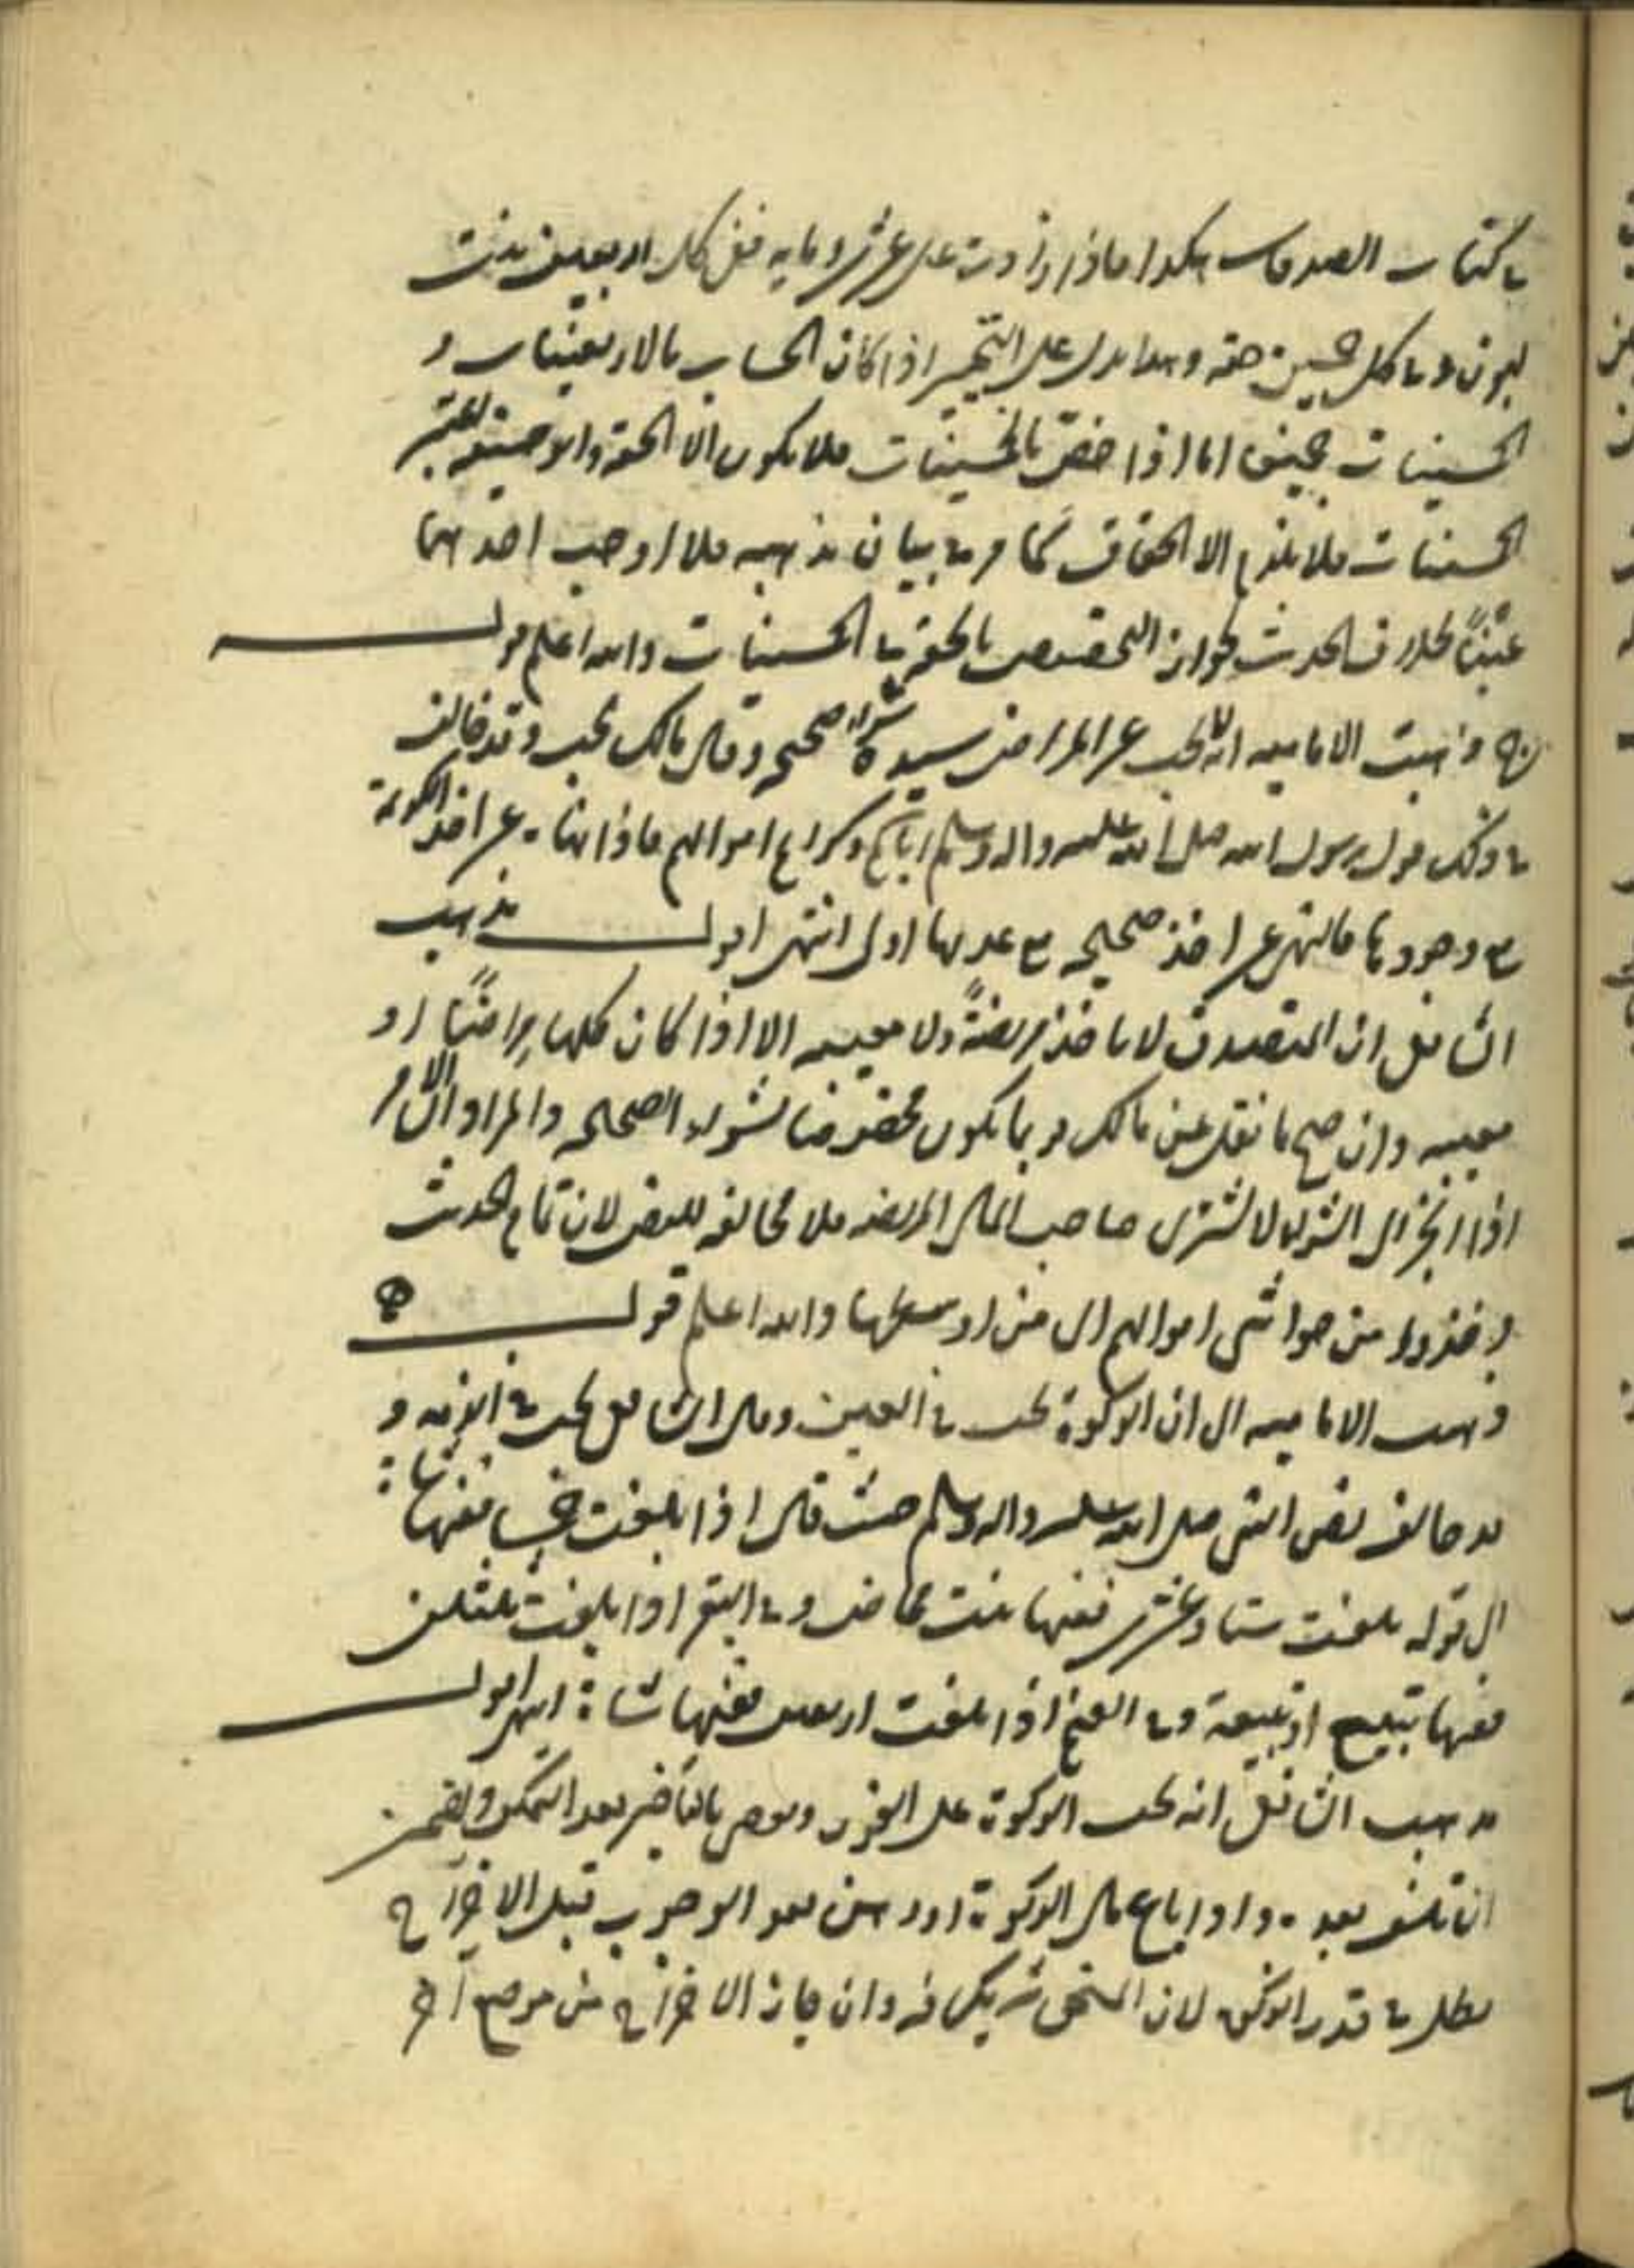 في كتاب الصدقات هكذا فاذا زادت على عشرين ومايه ففي كل اربعين بنت
لبون وفي كل خمسين حقه وهذا يدل على التخيير اذا كان الحساب بالاربعينات و
الخمسينات جميعا اما اذا خص بالخمسينات فلا يكون الا الحقة وابو حنيفه يعتبر
الخمسينات فلا يلزم الا الحقاق كما مر في بيان مذهبه فلا اوجب احدهما
عينًا بخلاف الحديث لجواز التخصيص بالحقه في الخمسينات والله اعلم قولـــه
ذهبت الاماميه انه لا يجب عن المراض شراء صحيحه وقال مالك يجب وقد خالف
في ذلك قول رسول الله صلى الله عليه واله وسلم اياكم وكرائم اموالهم فاذا نهاه عن اخذ الكريمة
مع وجودها فالنهي عن اخذ صحيحه مع عدمها اولى انتهى اقولـــ مذهب
الشافعي ان المتصدق لا ياخذ مريضةً ولا معيبه الا اذا كان كلها مراضًا او
معيبه وان صح ما نقل عن مالك فربما يكون محضر رضا بشراء الصحيحه والمراد
اذا انجز الى الشراء لا لشترى صاحب المال المريضه فلا مخالفه للنص لان تمام الحديث
وخذوا من حواشي اموالهم اي من اوسطها والله اعلم قولـــه
ذهبت الاماميه الى ان الزكوة تجب في العين وقال الشافعي يجب في الذمه و
قد خالف نص النبي صلى الله عليه واله وسلم حيث قال اذا بلغت خمسا ففيها شاة
الى قوله بلغت ستا وعشرين ففيها بنت مخاض وفي البقر اذا بلغت ثلثين
ففيها تبيع او تبيعة وفي الغنم اذا بلغت اربعين ففيها شاة انتهى اقولـــ
مذهب الشافعي انه يجب الزكوة على الفور ويعصى بالتأخير بعد التمكن ويضمن
ان تلف بعده واذا باع مال الزكوة او رهن بعد الوجوب قبل الاخراج
بطل في قدر الزكوة لان المستحق شريك فيه وان جاز الاخراج من موضع آخر